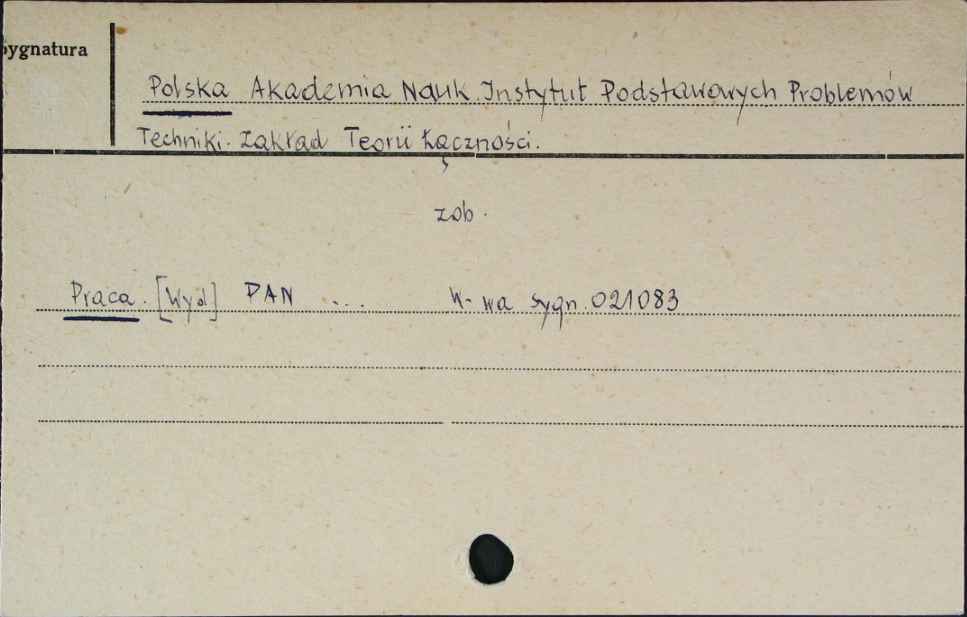 Sygnatura
Polska Akademia Nauk. Instytut Podstawowych Problemów
Techniki. Zakład Teorii Łączności.
zob.
Praca. [Wyd] PAN ... W-wa sygn. 021083